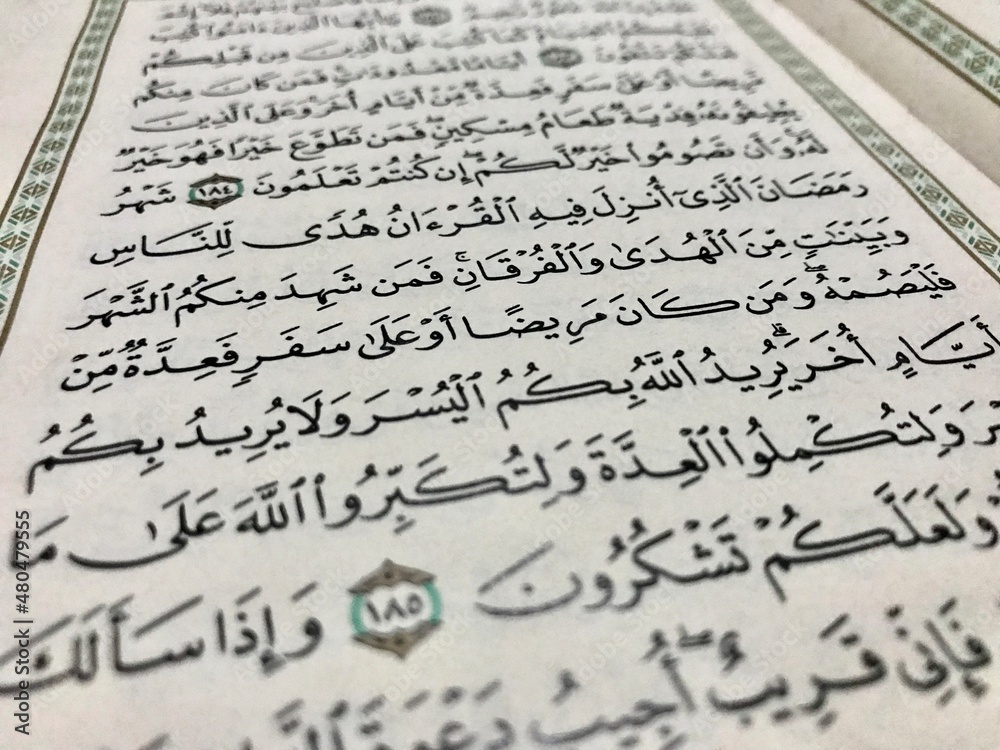 عَلَى ٱلَّذِينَ مِن قَبْلِكُمْ
مَّرِيضًا أَوْ عَلَىٰ سَفَرٍ فَعِدَّةٌ مِّنْ أَيَّامٍ أُخَرَ وَعَلَى ٱلَّذِينَ
يُطِيقُونَهُۥ فِدْيَةٌ طَعَامُ مِسْكِينٍ فَمَن تَطَوَّعَ خَيْرًا فَهُوَ خَيْرٌ
لَّهُۥ وَأَن تَصُومُوا۟ خَيْرٌ لَّكُمْ إِن كُنتُمْ تَعْلَمُونَ ١٨٤ شَهْرُ
رَمَضَانَ ٱلَّذِىٓ أُنزِلَ فِيهِ ٱلْقُرْءَانُ هُدًى لِّلنَّاسِ
وَبَيِّنَٰتٍ مِّنَ ٱلْهُدَىٰ وَٱلْفُرْقَانِ ۚ فَمَن شَهِدَ مِنكُمُ ٱلشَّهْرَ
فَلْيَصُمْهُ ۖ وَمَن كَانَ مَرِيضًا أَوْ عَلَىٰ سَفَرٍ فَعِدَّةٌ مِّنْ
أَيَّامٍ أُخَرَ ۗ يُرِيدُ ٱللَّهُ بِكُمُ ٱلْيُسْرَ وَلَا يُرِيدُ بِكُمُ
وَلِتُكْمِلُوا۟ ٱلْعِدَّةَ وَلِتُكَبِّرُوا۟ ٱللَّهَ عَلَىٰ
وَلَعَلَّكُمْ تَشْكُرُونَ ١٨٥ وَإِذَا سَأَلَكَ
فَإِنِّى قَرِيبٌ ۖ أُجِيبُ دَعْوَةَ
Adobe Stock | #480479555